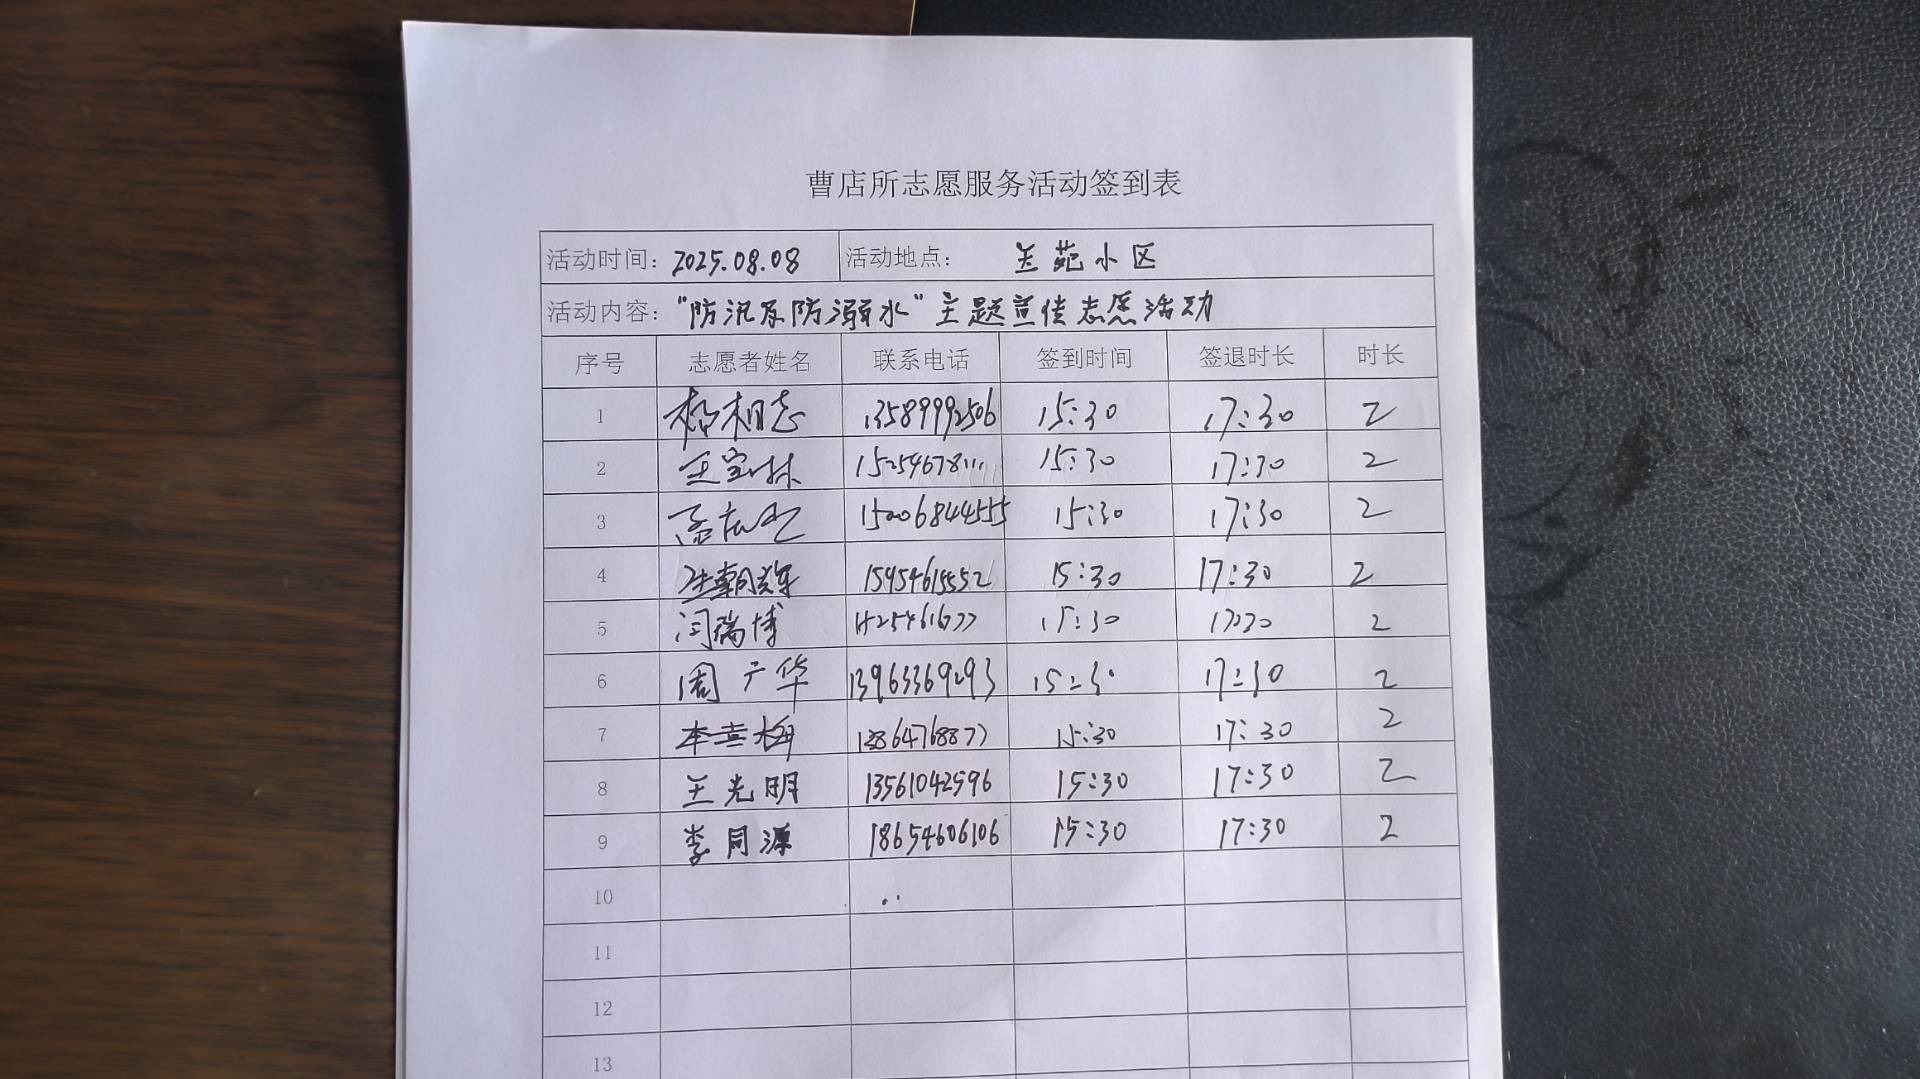 曹店所志愿服务活动签到表
活动时间: 2025.08.08 活动地点: 兰苑小区
活动内容: "防汛及防溺水"主题宣传志愿活动
序号 志愿者姓名 联系电话 签到时间 签退时长 时长
1 杨相志 13589992506 15:30 17:30 2
2 王宝林 15254678111 15:30 17:30 2
3 孟 15006844555 15:30 17:30 2
4 15954615552 15:30 17:30 2
5 闫瑞博 15:30 17:30 2
6 周广华 13963369293 15:30 17:30 2
7 李喜梅 13864768877 15:30 17:30 2
8 王光明 13561042596 15:30 17:30 2
9 李同源 18654606106 15:30 17:30 2
10
11
12
13